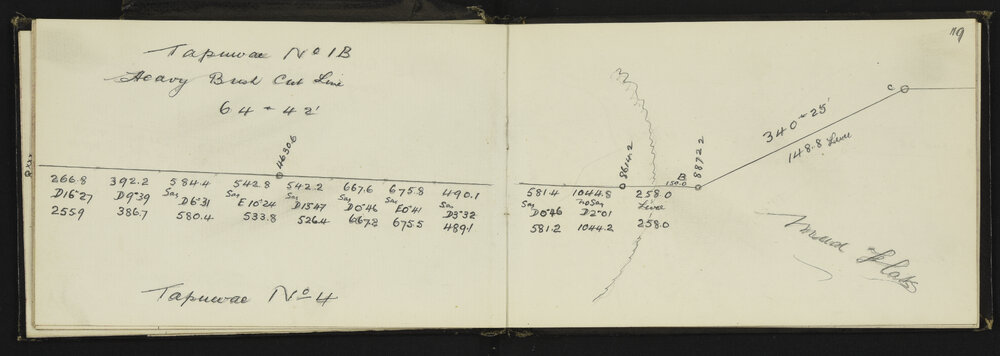 Tapuwae No 1B
Heavy Bush Cut Line
64° 42'
4630.6
266.8 392.2 584.4 542.8 542.2 667.6 675.8 490.1
D16°27 D9°39 Sag D6°31 Sag E10°24 Sag D13°47 Sag D0°46 Sag E0°41 Sag D3°32
255.9 386.7 580.4 533.8 526.4 667.2 675.5 489.1
Tapuwae No 4
119
C
340° 25'
148.8 Line
8614.2
8872.2
B
150.0
581.4 1044.8 258.0
Sag D0°46 no Sag D2°01 Level
581.2 1044.2 258.0
Mud Flats